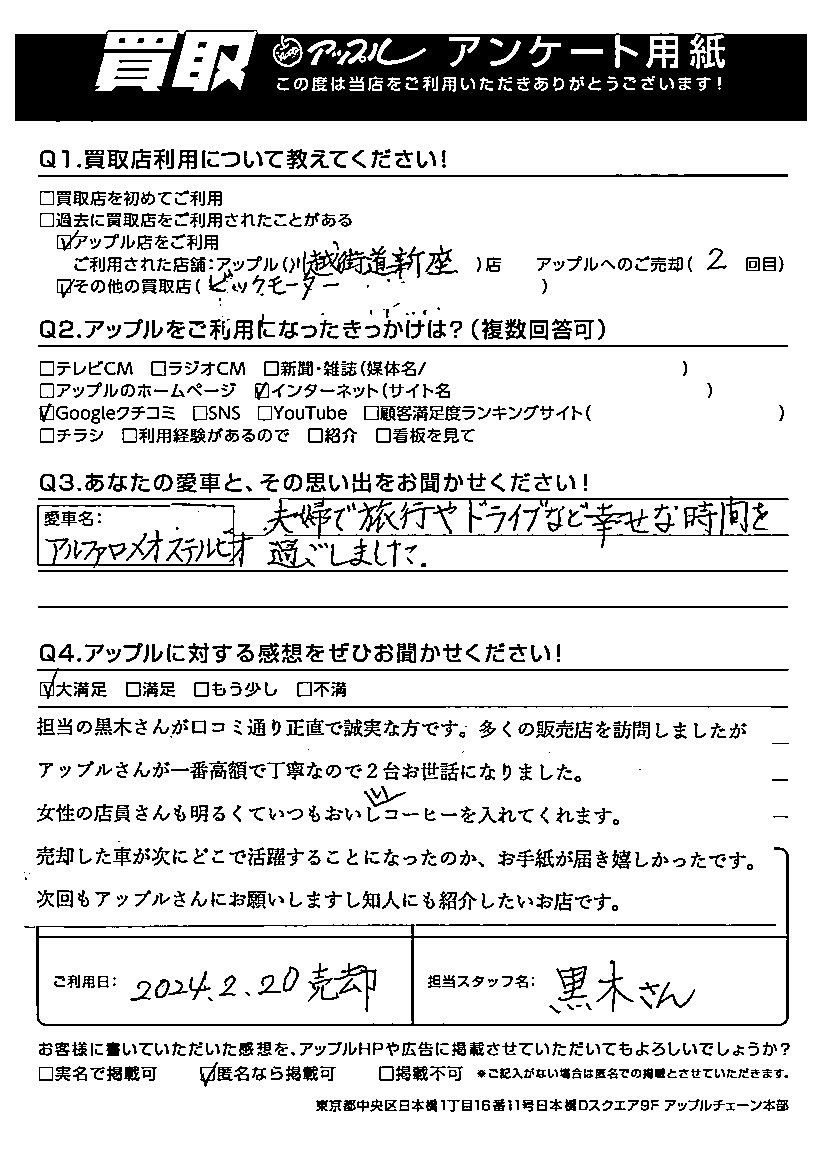 買取 アップル アンケート用紙
この度は当店をご利用いただきありがとうございます!
Q1.買取店利用について教えてください!
□買取店を初めてご利用
□過去に買取店をご利用されたことがある
☑アップル店をご利用
ご利用された店舗:アップル(川越街道新座 )店 アップルへのご売却( 2 回目)
☑その他の買取店( ビックモーター )
Q2.アップルをご利用になったきっかけは?(複数回答可)
□テレビCM □ラジオCM □新聞・雑誌(媒体名/ )
□アップルのホームページ ☑インターネット(サイト名 )
☑Googleクチコミ □SNS □YouTube □顧客満足度ランキングサイト( )
□チラシ □利用経験があるので □紹介 □看板を見て
Q3.あなたの愛車と、その思い出をお聞かせください!
愛車名: 夫婦で旅行やドライブなど幸せな時間を
アルファロメオステルビオ 過ごしました.
Q4.アップルに対する感想をぜひお聞かせください!
☑大満足 □満足 □もう少し □不満
担当の黒木さんが口コミ通り正直で誠実な方です。多くの販売店を訪問しましたが
アップルさんが一番高額で丁寧なので2台お世話になりました。
女性の店員さんも明るくていつもおいしコーヒーを入れてくれます。
い
売却した車が次にどこで活躍することになったのか、お手紙が届き嬉しかったです。
次回もアップルさんにお願いしますし知人にも紹介したいお店です。
ご利用日: 2024.2.20 売却 担当スタッフ名: 黒木さん
お客様に書いていただいた感想を、アップルHPや広告に掲載させていただいてもよろしいでしょうか?
□実名で掲載可 ☑匿名なら掲載可 □掲載不可 *ご記入がない場合は匿名での掲載とさせていただきます。
東京都中央区日本橋1丁目16番11号日本橋Dスクエア9F アップルチェーン本部